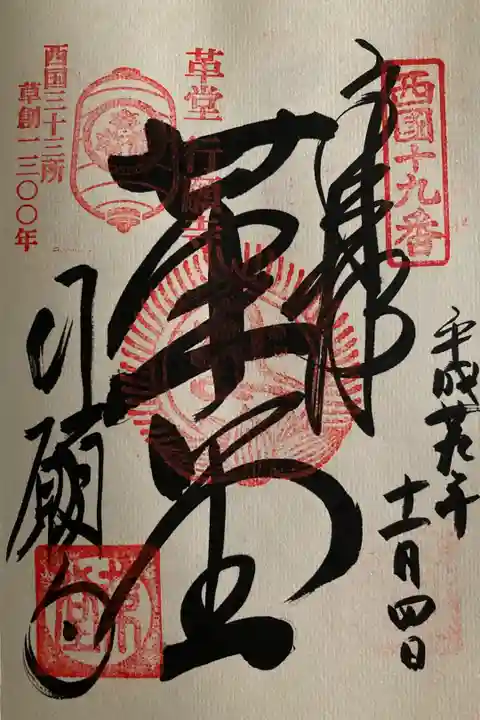 西國十九番
奉拝
平成廿九年
十一月四日
革堂
革堂 行願寺
西国三十三所
草創一三〇〇年
行願寺